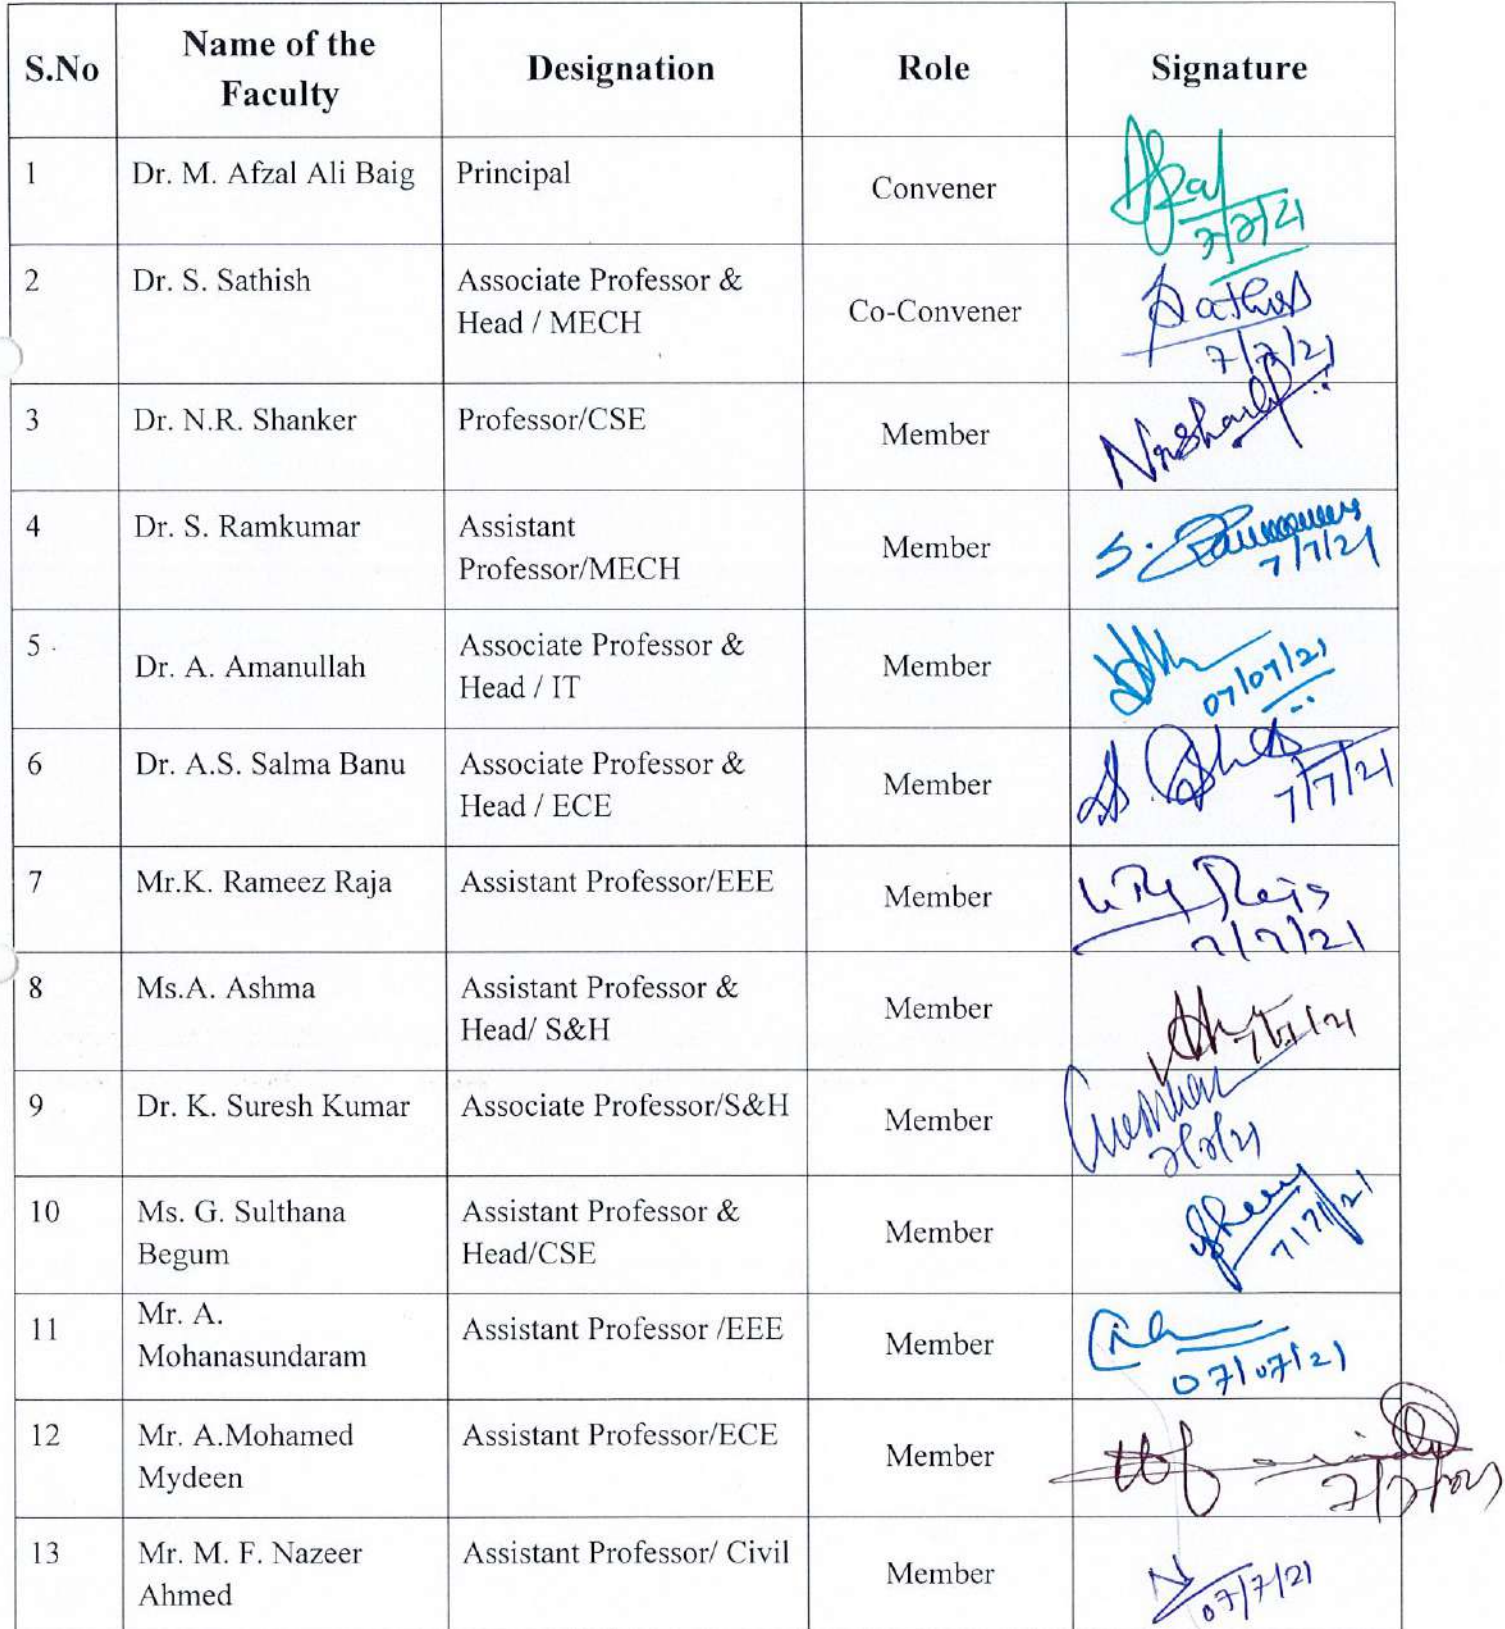 S.No Name of the Faculty Designation Role Signature
1 Dr. M. Afzal Ali Baig Principal Convener
7/7/21
2 Dr. S. Sathish Associate Professor &
Head / MECH Co-Convener Sathish
7/7/21
3 Dr. N.R. Shanker Professor/CSE Member
4 Dr. S. Ramkumar Assistant
Professor/MECH Member S.
7/7/21
5 Dr. A. Amanullah Associate Professor &
Head / IT Member
07/07/21
6 Dr. A.S. Salma Banu Associate Professor &
Head / ECE Member
7/7/21
7 Mr.K. Rameez Raja Assistant Professor/EEE Member Raja
7/7/21
8 Ms.A. Ashma Assistant Professor &
Head/ S&H Member
7/7/21
9 Dr. K. Suresh Kumar Associate Professor/S&H Member
7/7/21
10 Ms. G. Sulthana
Begum Assistant Professor &
Head/CSE Member
7/7/21
11 Mr. A.
Mohanasundaram Assistant Professor /EEE Member
07/07/21
12 Mr. A.Mohamed
Mydeen Assistant Professor/ECE Member
13 Mr. M. F. Nazeer
Ahmed Assistant Professor/ Civil Member
07/7/21